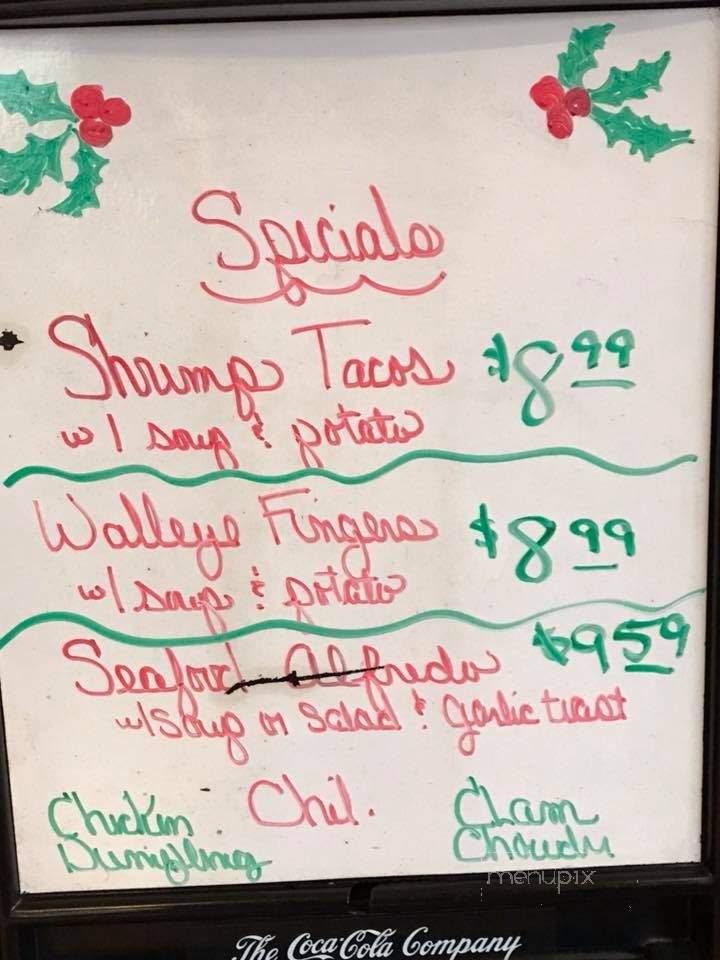 Specials
Shrimp Tacos $8.99
w/ soup & potato
Walleye Fingers $8.99
w/ soup & potato
Seafood Alfredo $9.59
w/ Soup or Salad & Garlic toast
Chicken Dumpling
Chil.
Clam Chowdr
menupix
The Coca-Cola Company